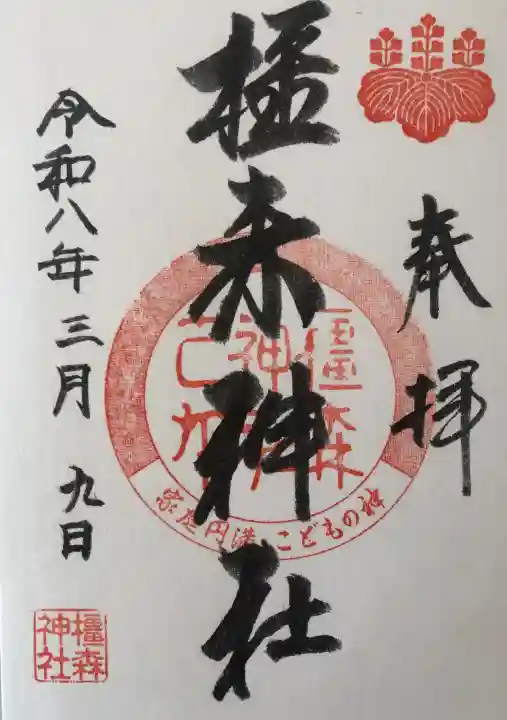 奉拝
橿森神社
令和八年三月九日
橿森
家庭円満 こどもの神
橿森
神社